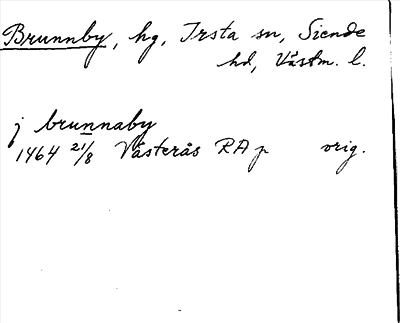 Brunnby, hg, Irsta sn, Siende
hd, Västm. l.
j brunnaby
1464 21/8 Västerås RA p orig.